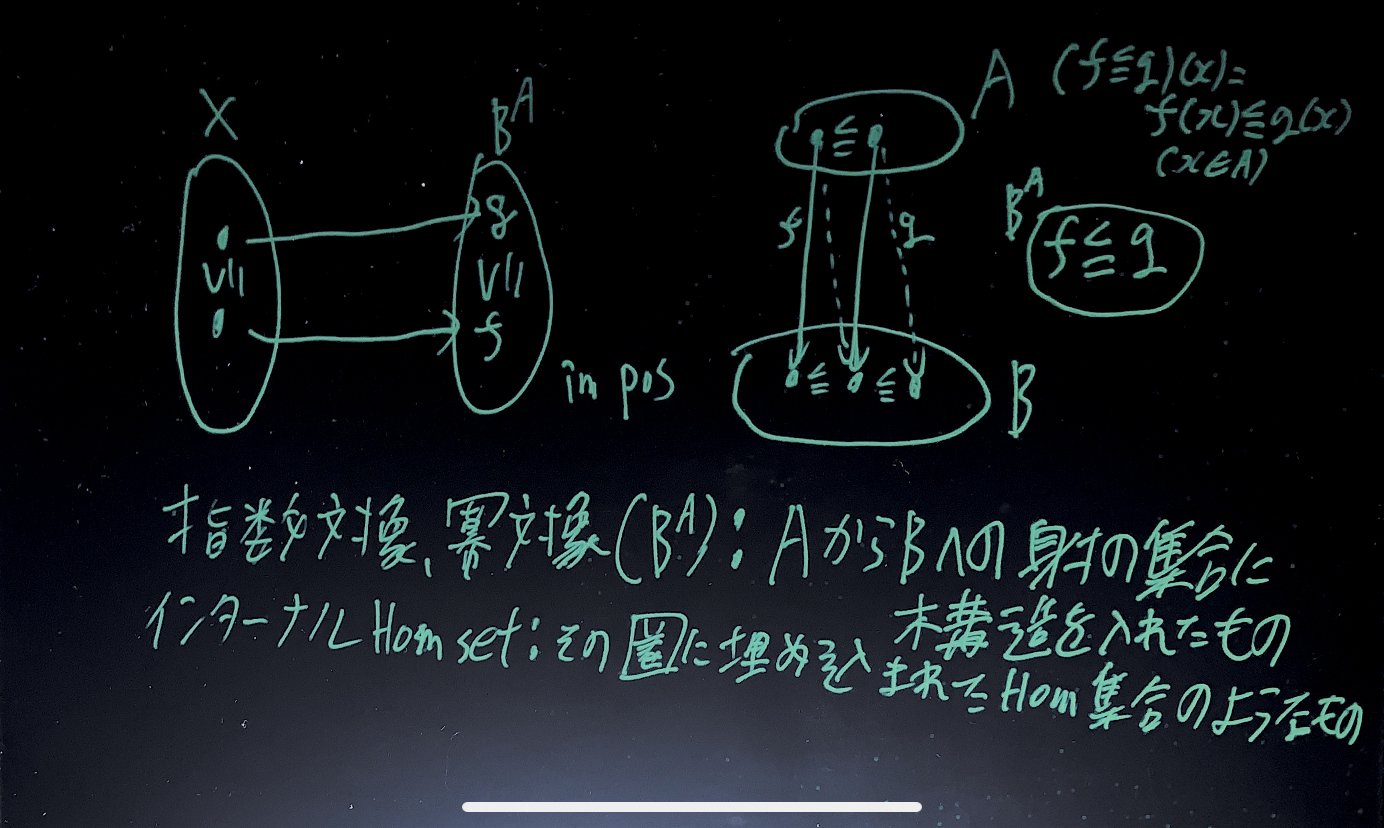 X
B^A
g
≦
f
in pos
A
≦
f
g
≦ ≦
B
(f≦g)(x)=
f(x)≦g(x)
(x∈A)
B^A
f≦g
指数対象、冪対象(B^A):AからBへの射の集合に
構造を入れたもの
インターナルHom set:その圏に埋め込まれたHom集合のようなもの